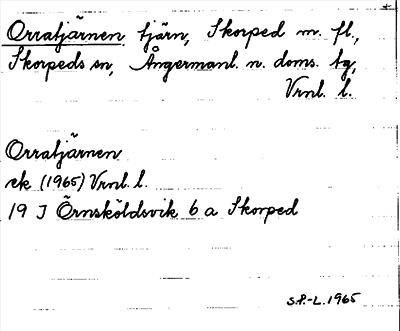 Orratjärnen, tjärn, Skorped m. fl.,
Skorpeds sn, Ångermanl. n. doms. tg,
Vrnl. l.
Orratjärnen
ek (1965) Vrnl. l.
19 J Örnsköldsvik 6 a Skorped
S.P.-L. 1965